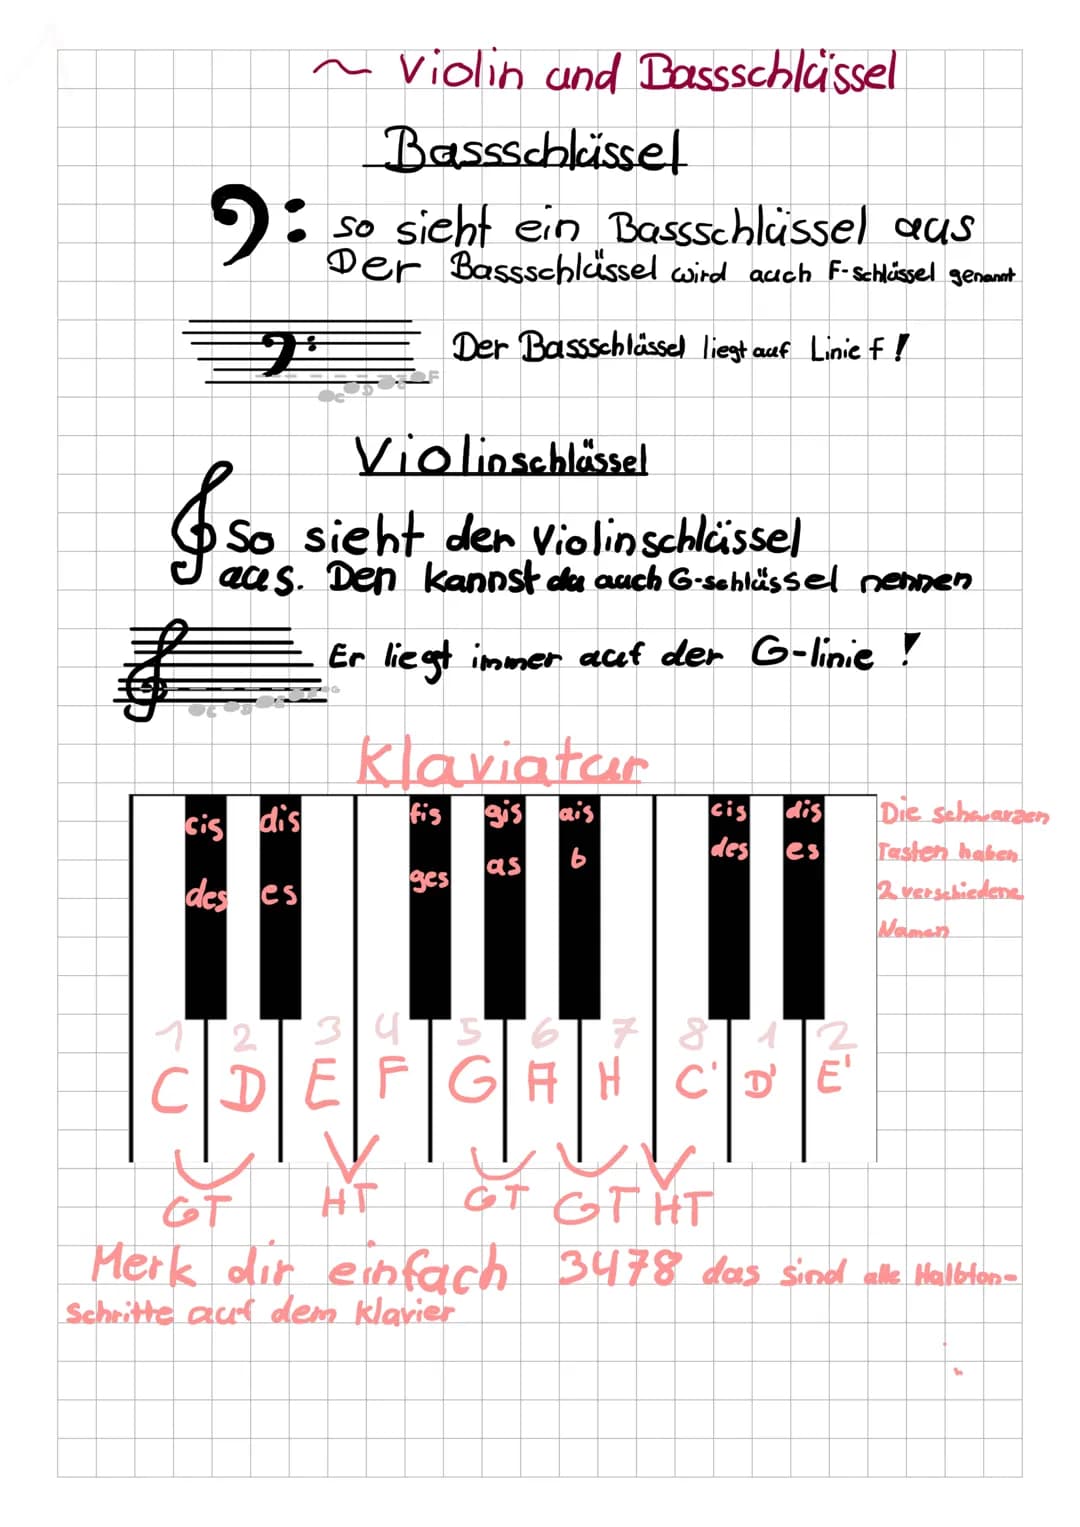 ~ Violin und Bassschlüssel
Bassschlüssel
so sieht ein Bassschlüssel aus
Der Bassschlüssel wird auch F-schlüssel genannt
Der Bassschlüssel liegt auf Linie f !
C D E F
Violinschlüssel
So sieht der Violinschlüssel
aus. Den kannst du auch G-schlüssel nennen
Er liegt immer auf der G-linie !
C D E F G
Klaviatur
cis dis fis gis ais cis dis
des es ges as b des es
Die schwarzen
Tasten haben
2 verschiedene
Namen
1 2 3 4 5 6 7 8 1 2
C D E F G A H C' D' E'
GT HT GT GT HT
Merk dir einfach 3478 das sind alle Halbton-
schritte auf dem Klavier